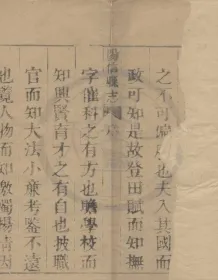 之不可偏廢也夫入其國而
政可知是故登田賦而知撫
字催科之有方也贍學校而
知興賢育才之有自也披職
官而知大法小廉考鑒不遠
也覽人物而知激濁揚清因